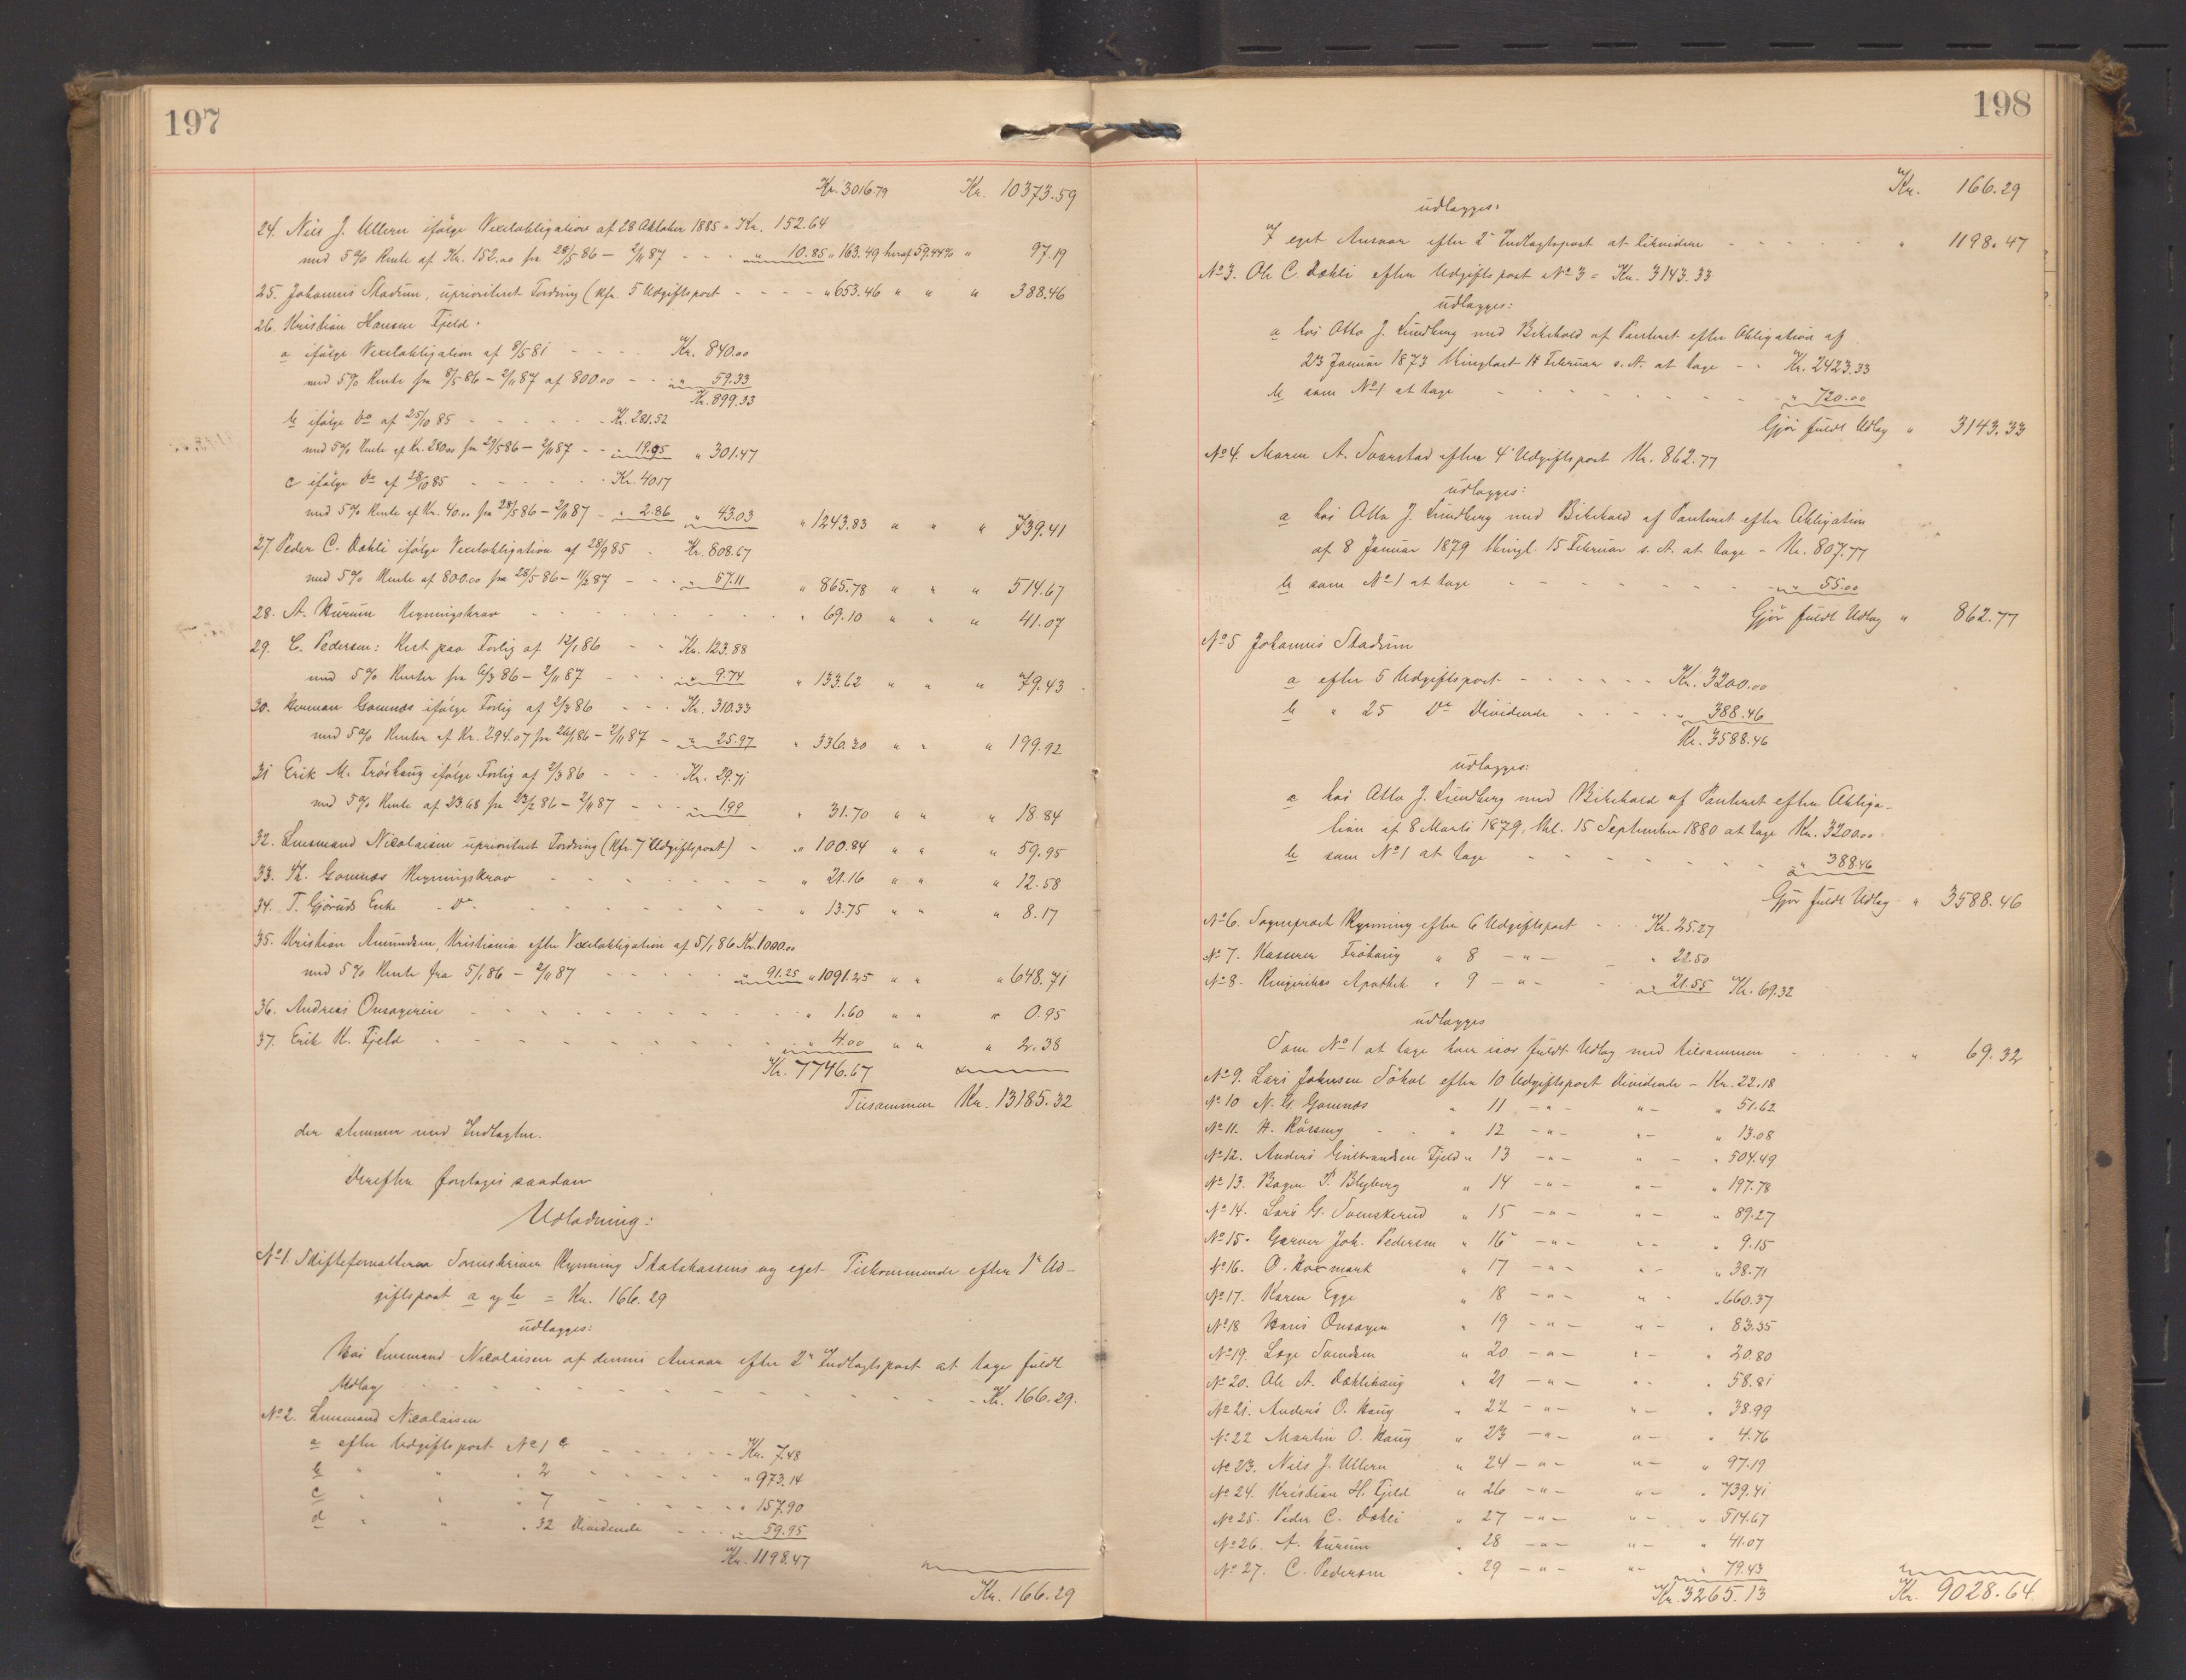 197
Kr. 3016.79 Kr. 10373.59
24. Nils J. Ullern ifølge Vexelobligation af 28 Oktober 1885 = Kr. 152.64
med 5% Rente af Kr. 152.00 fra 28/5 86 – 2/11 87 - - - " 10.85 " 163.49 heraf 59.44% " 97.19
25. Johannis Stadum, uprioriteret Fordring (kfr. 5 Udgiftspost - - - - " 653.46 " " " 388.46
26. Kristian Hansen Fjeld:
a ifølge Vexelobligation af 8/5 81 - - - - Kr. 840.00
med 5% Rente fra 8/5 86 – 2/11 87 af 800.00 - - " 59.33
Kr. 899.33
b ifølge Do af 25/10 85 - - - - - - Kr. 281.52
med 5% Rente af Kr. 280.00 fra 29/5 86 – 2/11 87 - - " 19.95 " 301.47
c ifølge Do af 28/10 85 - - - - - - Kr. 40.17
med 5% Rente af Kr. 40.00 fra 28/5 86 – 2/11 87 - " 2.86 " 43.03 " 1243.83 " " " 739.41
27. Peder C. Dæhli ifølge Vexelobligation af 28/9 85 - Kr. 808.67
med 5% Rente af 800.00 fra 28/5 86 – 11/2 87 - - - " 57.11 " 865.78 " " " 514.67
28. A. Hurum Regningskrav - - - - - - - - - " 69.10 " " " 41.07
29. C. Pedersen: Rest paa Forlig af 12/1 86 - - Kr. 123.88
med 5% Renter fra 6/3 86 – 2/11 87 - - - " 9.74 " 133.62 " " " 79.43
30. Herman Gomnæs ifølge Forlig af 2/3 86 - - - Kr. 310.33
med 5% Renter af Kr. 294.07 fra 26/1 86 – 2/11 87 - " 25.97 " 336.30 " " " 199.92
31 Erik M. Frøshaug ifølge Forlig af 2/3 86 - - - Kr. 29.71
med 5% Rente af 23.68 fra 23/2 86 – 2/11 87 - - - " 1.99 " 31.70 " " " 18.84
32. Lensmand Nicolaisen uprioriteret Fordring (kfr. 7 Udgiftspost) - " 100.84 " " " 59.95
33. Th. Gomnæs Regningskrav - - - - - - - " 21.16 " " " 12.58
34. T. Gjøruds Enke - Do - - - - - - - - " 13.75 " " " 8.17
35. Kristian Amundsen, Kristiania efter Vexelobligation af 5/1 86 Kr. 1000.00
med 5% Rente fra 5/1 86 – 2/11 87 - - - - - " 91.25 " 1091.25 " " " 648.71
36. Andreas Onsageren - - - - - - - - - " 1.60 " " " 0.95
37. Erik K. Fjeld - - - - - - - - - - " 4.00 " " " 2.38
Kr. 7746.67
Tilsammen Kr. 13185.32
der stemmer med Indtægten.
Derefter foretages saadan
Udlodning:
No 1. Skifteforvalteren Sorenskriver Rynning Statskassens og eget Tilkommende efter 1' Ud-
giftspost a og b = Kr. 166.29
udlægges:
Hos Lensmand Nicolaisen af dennes Ansvar efter 2' Indtægtspost at tage fuldt
Udlæg - - - - - - - - - - - - Kr. 166.29.
No 2. Lensmand Nicolaisen
a efter Udgiftspost No 1 c - - - - - - Kr. 7.48
b " " " 2 - - - - - " 973.14
c " " " 7 - - - - - " 157.90
d " " " 32 Dividende - - - " 59.95
Kr. 1198.47
Kr. 166.29
198
Kr. 166.29
udlægges:
I eget Ansvar efter 2' Indtægtspost at likvidere - - - - - - - " 1198.47
No 3. Ole C. Dæhli efter Udgiftspost No 3 = Kr. 3143.33
udlægges:
a hos Otto J. Lundberg med Bibehold af Panteret efter Obligation af
23 Januar 1873 thinglæst 14 Februar s. A. at tage - - Kr. 2423.33
b som No 1 at tage - - - - - - - " 720.00
Gjør fuldt Udlæg " 3143.33
No 4. Maren A. Svarstad efter 4' Udgiftspost Kr. 862.77
udlægges:
a hos Otto J. Lundberg med Bibehold af Panteret efter Obligation
af 8 Januar 1879 thingl. 15 Februar s. A. at tage - Kr. 807.77
b som No 1 at tage - - - - - - - " 55.00
Gjør fuldt Udlæg " 862.77
No 5 Johannis Stadum
a efter 5 Udgiftspost - - - - - - Kr. 3200.00
b " 25 Do Dividende - - - - " 388.46
Kr. 3588.46
udlægges:
a hos Otto J. Lundberg med Bibehold af Panteret efter Obliga-
tion af 8 Marts 1879, thl. 15 September 1880 at tage Kr. 3200.00
b som No 1 at tage - - - - - - - " 388.46
Gjør fuldt Udlæg " 3588.46
No 6. Sogneprest Rynning efter 6 Udgiftspost - - - Kr. 25.27
No 7. Kasserer Frøhaug " 8 - " - - " 22.50
No 8. Ringerikes Apothek " 9 - " - - " 21.55 Kr. 69.32
udlægges
Som No 1 at tage hver især fuldt Udlæg med tilsammen - - - - " 69.32
No 9. Lars Johnsen Søhol efter 10 Udgiftspost Dividende - Kr. 22.18
No 10 N. G. Gomnæs " 11 - " - " - " 51.62
No 11. H. Rössing - - " 12 - " - " - " 13.08
No 12. Anders Gulbrandsen Fjeld " 13 - " - " - " 504.49
No 13. Bager P. Blyberg " 14 - " - " - " 197.78
No 14. Lars G. Svenskerud " 15 - " - " - " 89.27
No 15. Garver Joh. Pedersen " 16 - " - " - " 9.15
No 16. O. Hoxmark " 17 - " - " - " 38.71
No 17. Karen Egge " 18 - " - " - " 660.37
No 18 Hans Onsagen " 19 - " - " - " 83.35
No 19. Lage Svendsen " 20 - " - " - " 20.80
No 20. Ole A. Dæhlihaug " 21 - " - " - " 58.81
No 21. Anders O. Haug " 22 - " - " - " 38.99
No 22 Martin O. Haug " 23 - " - " - " 4.76
No 23. Nils J. Ullern " 24 - " - " - " 97.19
No 24. Kristian H. Fjeld " 26 - " - " - " 739.41
No 25. Peder C. Dæhli " 27 - " - " - " 514.67
No 26. A. Hurum " 28 - " - " - " 41.07
No 27. C. Pedersen " 29 - " - " - " 79.43
Kr. 3265.13 Kr. 9028.64